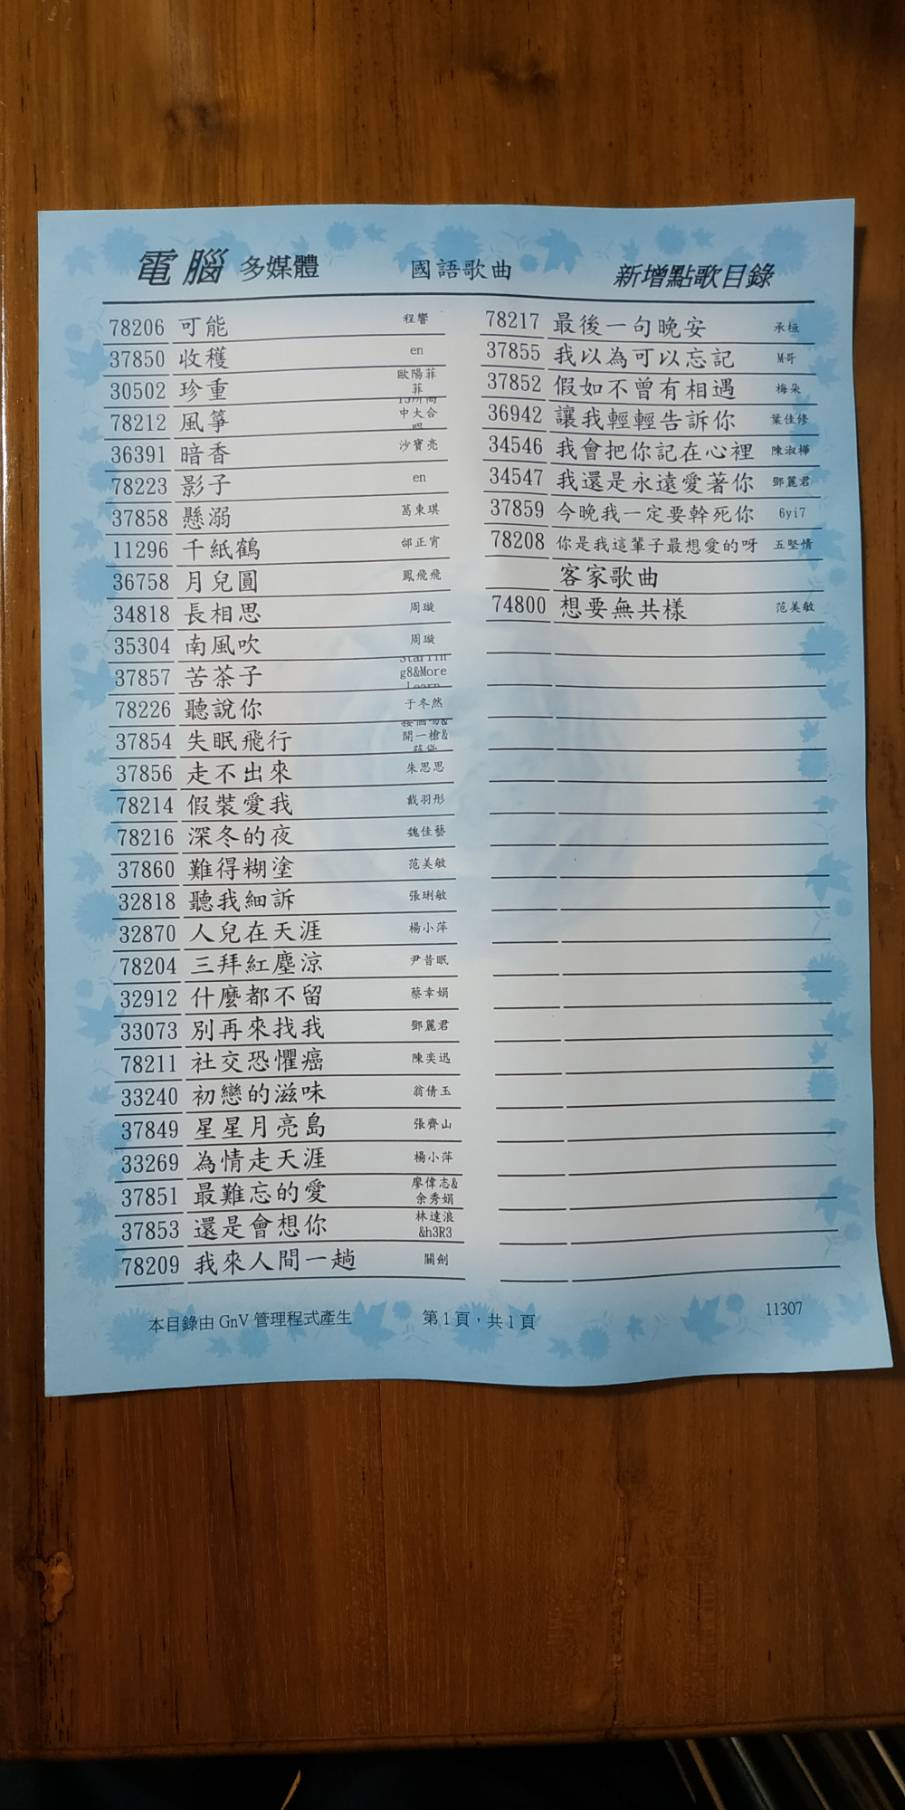 電腦 多媒體 國語歌曲 新增點歌目錄
78206 可能 程響
37850 收穫 en
30502 珍重 歐陽菲菲
78212 風箏 中大合
36391 暗香 沙寶亮
78223 影子 en
37858 懸溺 葛東琪
11296 千紙鶴 邰正宵
36758 月兒圓 鳳飛飛
34818 長相思 周璇
35304 南風吹 周璇
37857 苦茶子 Starling8&More Learn
78226 聽說你 于冬然
37854 失眠飛行 開一槍&
37856 走不出來 朱思思
78214 假裝愛我 戴羽彤
78216 深冬的夜 魏佳藝
37860 難得糊塗 范美敏
32818 聽我細訴 張琍敏
32870 人兒在天涯 楊小萍
78204 三拜紅塵涼 尹昔眠
32912 什麼都不留 蔡幸娟
33073 別再來找我 鄧麗君
78211 社交恐懼癌 陳奕迅
33240 初戀的滋味 翁倩玉
37849 星星月亮島 張齊山
33269 為情走天涯 楊小萍
37851 最難忘的愛 廖偉志&余秀娟
37853 還是會想你 林達浪&h3R3
78209 我來人間一趟 關劍
78217 最後一句晚安 承桓
37855 我以為可以忘記 M哥
37852 假如不曾有相遇 梅朵
36942 讓我輕輕告訴你 葉佳修
34546 我會把你記在心裡 陳淑樺
34547 我還是永遠愛著你 鄧麗君
37859 今晚我一定要幹死你 6yi7
78208 你是我這輩子最想愛的呀 五堅情
客家歌曲
74800 想要無共樣 范美敏
本目錄由 GnV 管理程式產生 第1頁，共1頁 11307